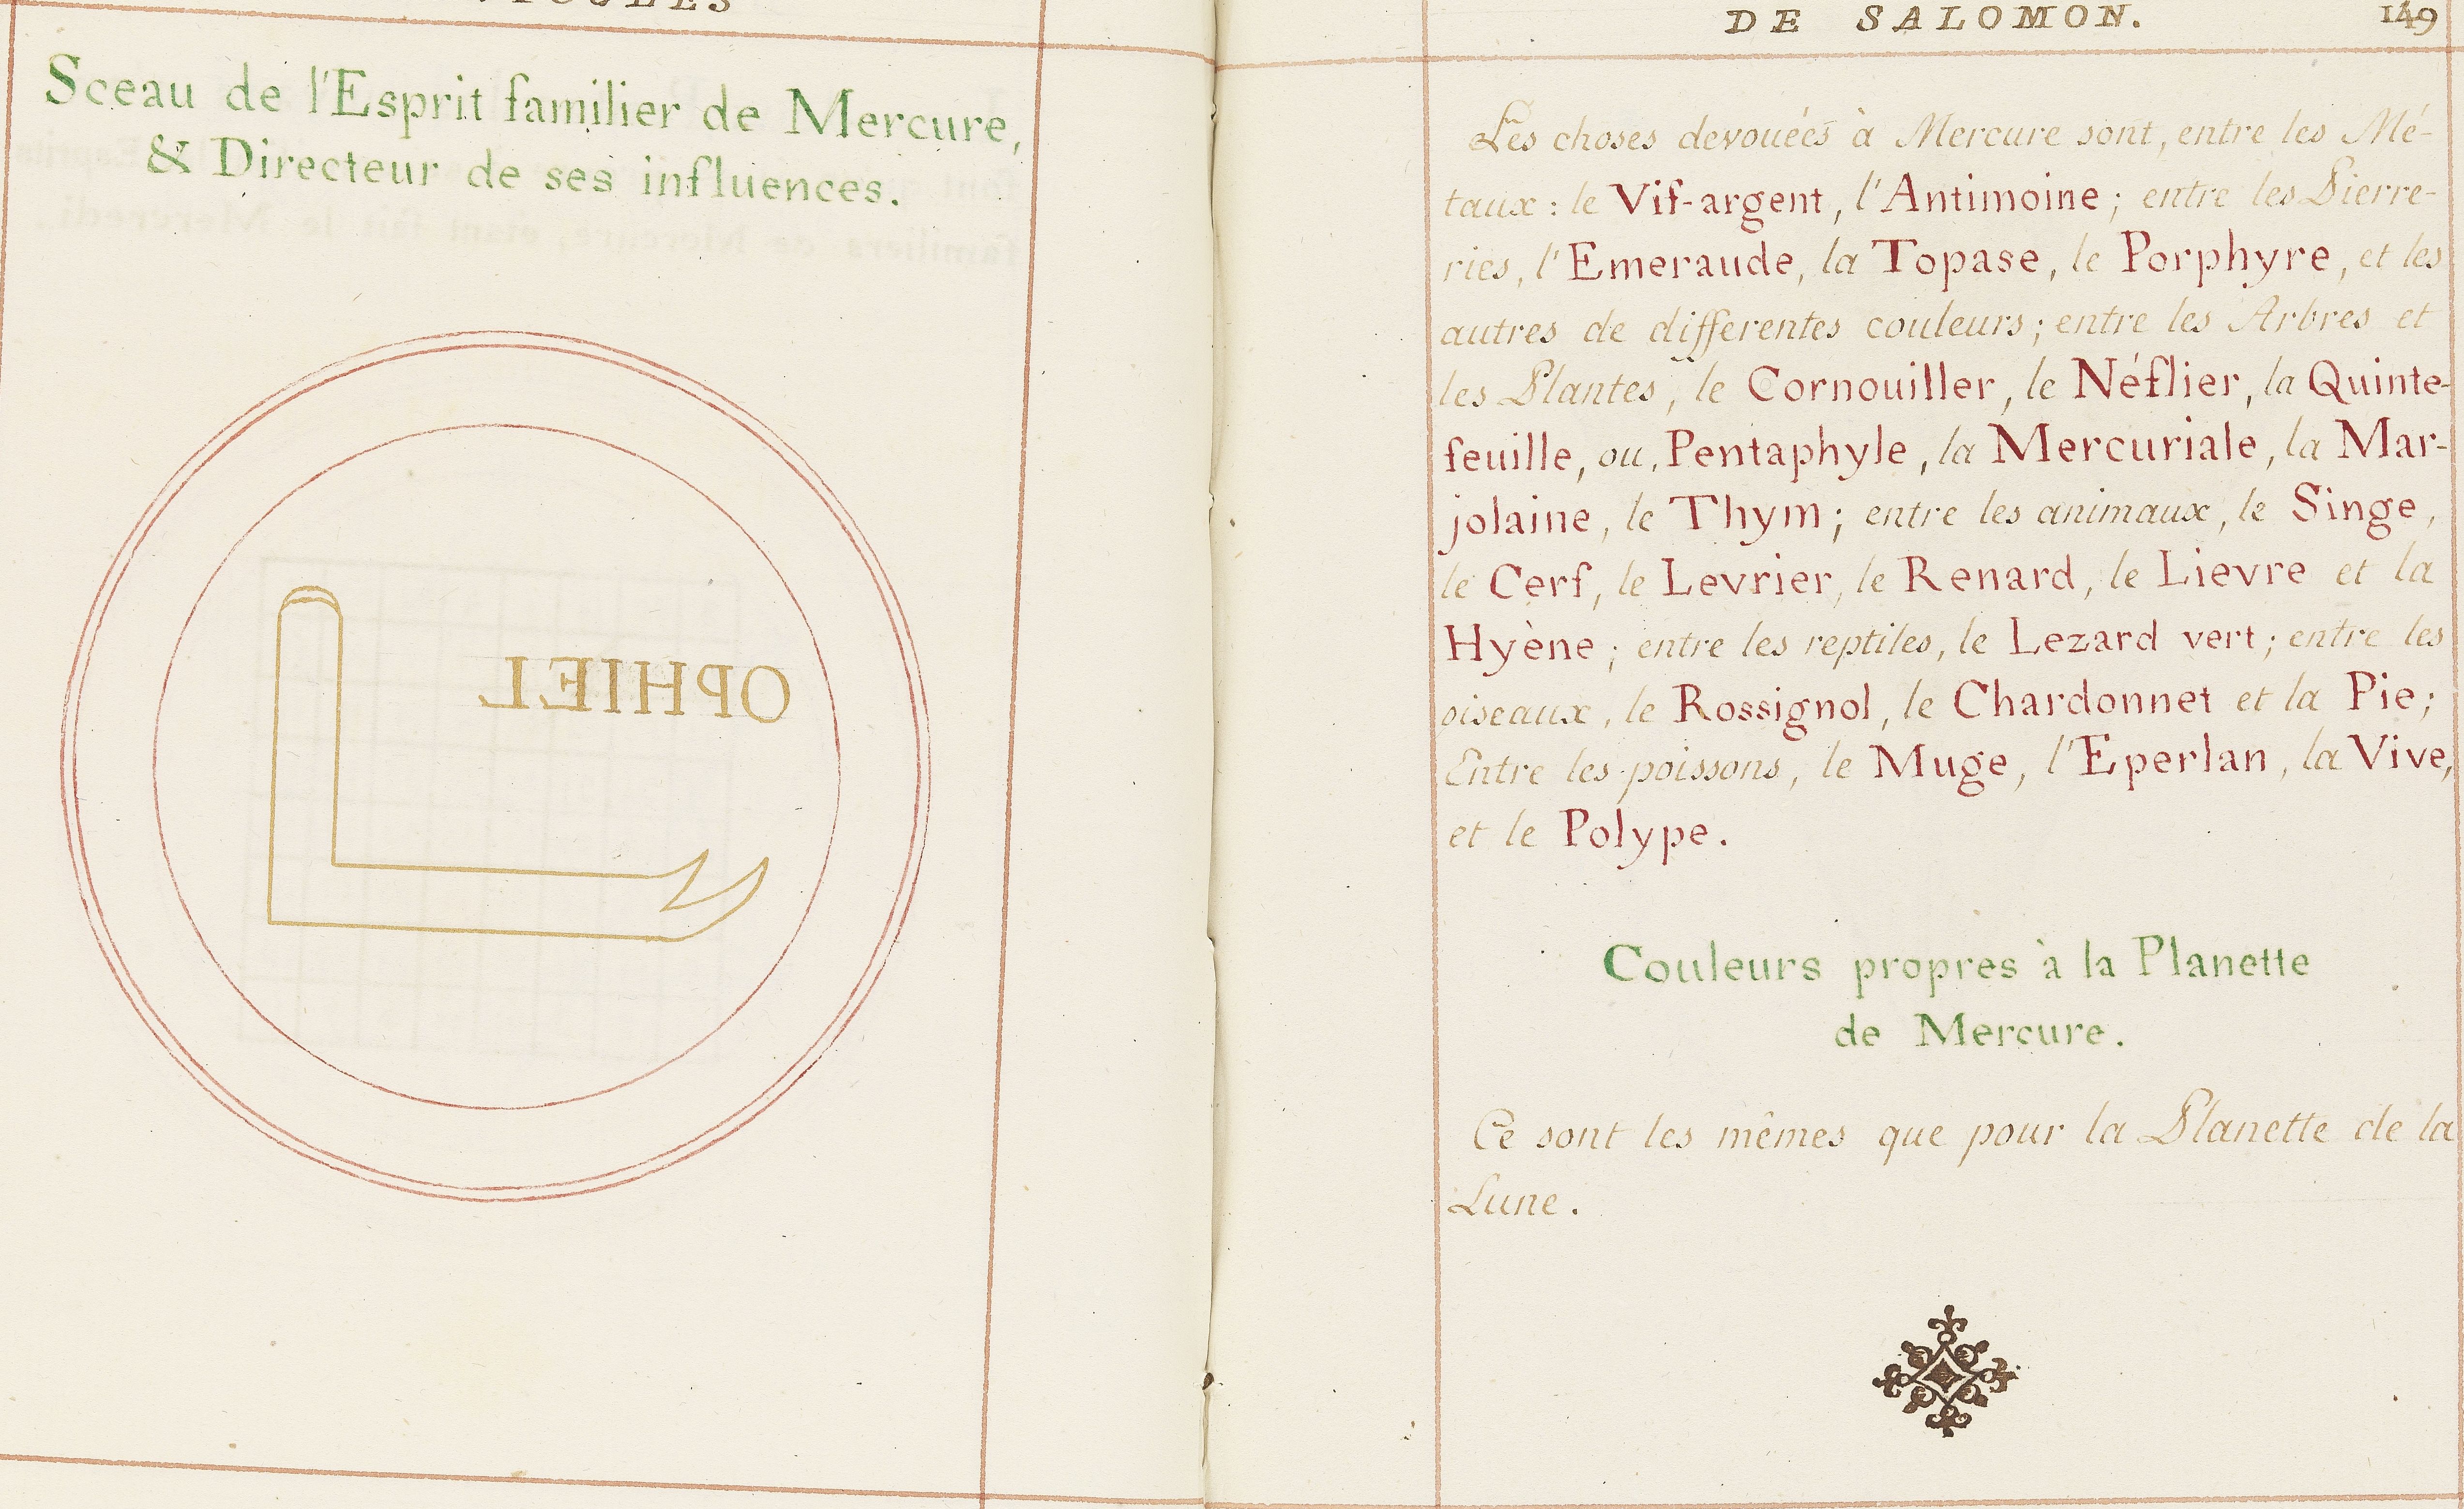 Sceau de l'Esprit familier de Mercure,
& Directeur de ses influences.
OPHIEL
DE SALOMON.
149
Les choses devouées à Mercure sont, entre les Mé-
taux : le Vif-argent, l'Antimoine ; entre les Pierre-
ries, l'Emeraude, la Topase, le Porphyre, et les
autres de differentes couleurs ; entre les Arbres et
les Plantes, le Cornouiller, le Néflier, la Quinte-
feuille, ou, Pentaphyle, la Mercuriale, la Mar-
jolaine, le Thym ; entre les animaux, le Singe,
le Cerf, le Levrier, le Renard, le Lievre et la
Hyène ; entre les reptiles, le Lezard vert ; entre les
oiseaux, le Rossignol, le Chardonnet et la Pie ;
Entre les poissons, le Muge, l'Eperlan, la Vive,
et le Polype.
Couleurs propres à la Planette
de Mercure.
Ce sont les mêmes que pour la Planette de la
Lune.